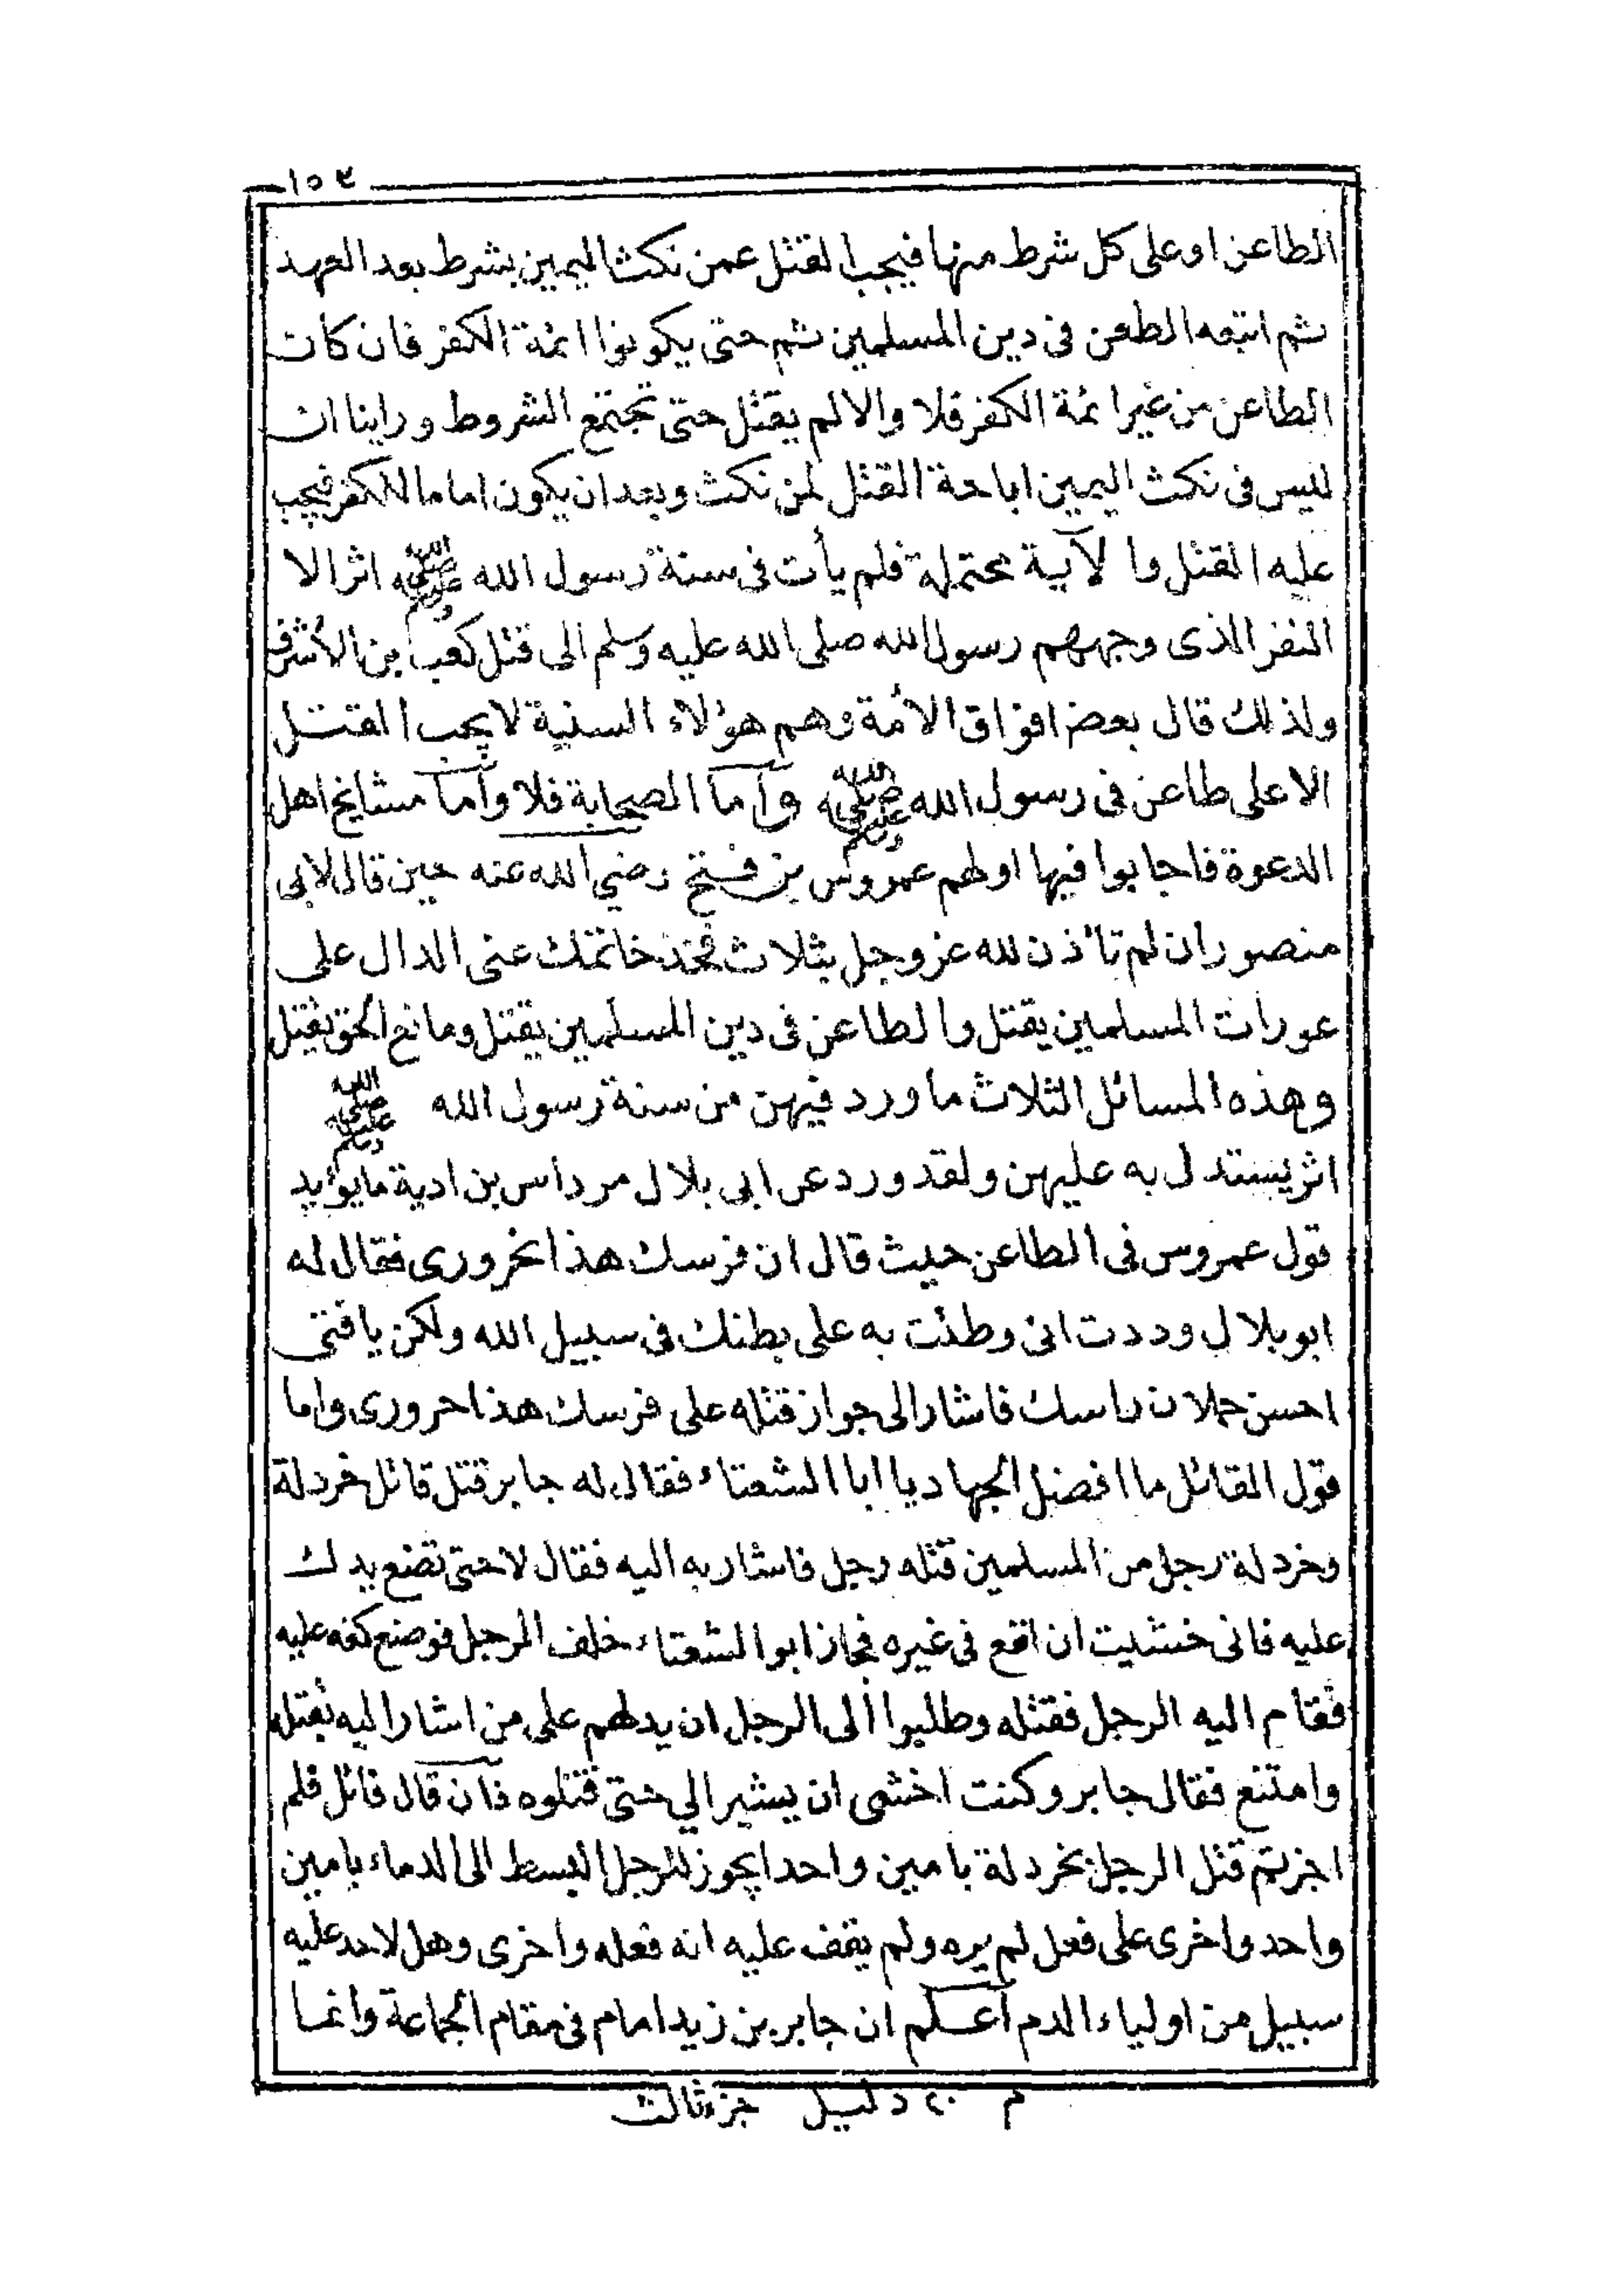 ١٥٣
الطاعن او على كل شرط منها فيجب القتل عمن نكث اليمين بشرط بعد العهد
ثم اتبعه الطعن فى دين المسلمين ثم حتى يكونوا ائمة الكفر فان كان
الطاعن من غير ائمة الكفر فلا والا لم يقتل حتى تجتمع الشروط وراينا ان
ليس فى نكث اليمين اباحة القتل لمن نكث وبعد ان يكون اماما للكفر فيجب
عليه القتل والآية محتملة فلم يأت فى سنة رسول الله صلى الله عليه وسلم اثر الا
النفر الذى وجههم رسول الله صلى الله عليه وسلم الى قتل كعب بن الأشرف
ولذلك قال بعض افراق الأمة وهم هؤلاء السنية لا يجب القتل
الا على طاعن فى رسول الله صلى الله عليه وسلم وأما الصحابة فلا وأما مشايخ اهل
الدعوة فاجابوا فيها اولهم عمروس بن فتح رضي الله عنه حين قال لابى
منصور ان لم تأذن لله عز وجل بثلاث فخذ خاتمك عنى الدال على
عورات المسلمين يقتل والطاعن فى دين المسلمين يقتل ومانع الحق يقتل
وهذه المسائل الثلاث ما ورد فيهن من سنة رسول الله صلى الله عليه وسلم
اثر يستدل به عليهن ولقد ورد عن ابى بلال مرداس بن ادية ما يؤيد
قول عمروس فى الطاعن حيث قال ان فرسك هذا لحرورى فقال له
ابو بلال وددت انى وطئت به على بطنك فى سبيل الله ولكن يا فتى
احسن حملان راسك فاشار الى جواز قتله على فرسك هذا حرورى واما
قول القائل ما افضل الجهاد يا ابا الشعتاء فقال له جابر قتل قاتل خردلة
وخردلة رجل من المسلمين قتله رجل فاشار به اليه فقال لا حتى تضع يدك
عليه فانى خشيت ان اقع فى غيره فجاز ابو الشعتاء خلف الرجل فوضع كفه عليه
فقام اليه الرجل فقتله وطلبوا الى الرجل ان يدلهم على من اشار اليه بقتله
وامتنع فقال جابر وكنت اخشى ان يشير الي حتى قتلوه فان قال قائل فلم
اجزتم قتل الرجل بخردلة بامين واحد ايجوز للرجل البسط الى الدماء بامين
واحد واخرى على فعل لم يره ولم يقف عليه انه فعله واخرى وهل لاحد عليه
سبيل من اولياء الدم أعلم ان جابر بن زيد امام فى مقام الجماعة وانما
م ٢٠ دليل جزء ثالث